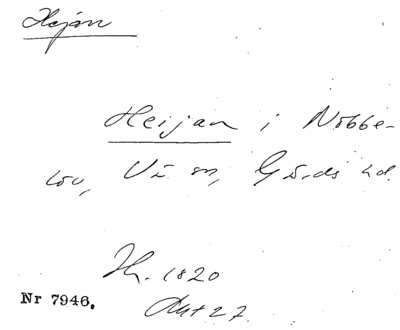 Hejan
Heijan i Nöbbe-
löv, Vä sn, Gärds hd.
Hr. 1820
Akt 27.
Nr 7946.